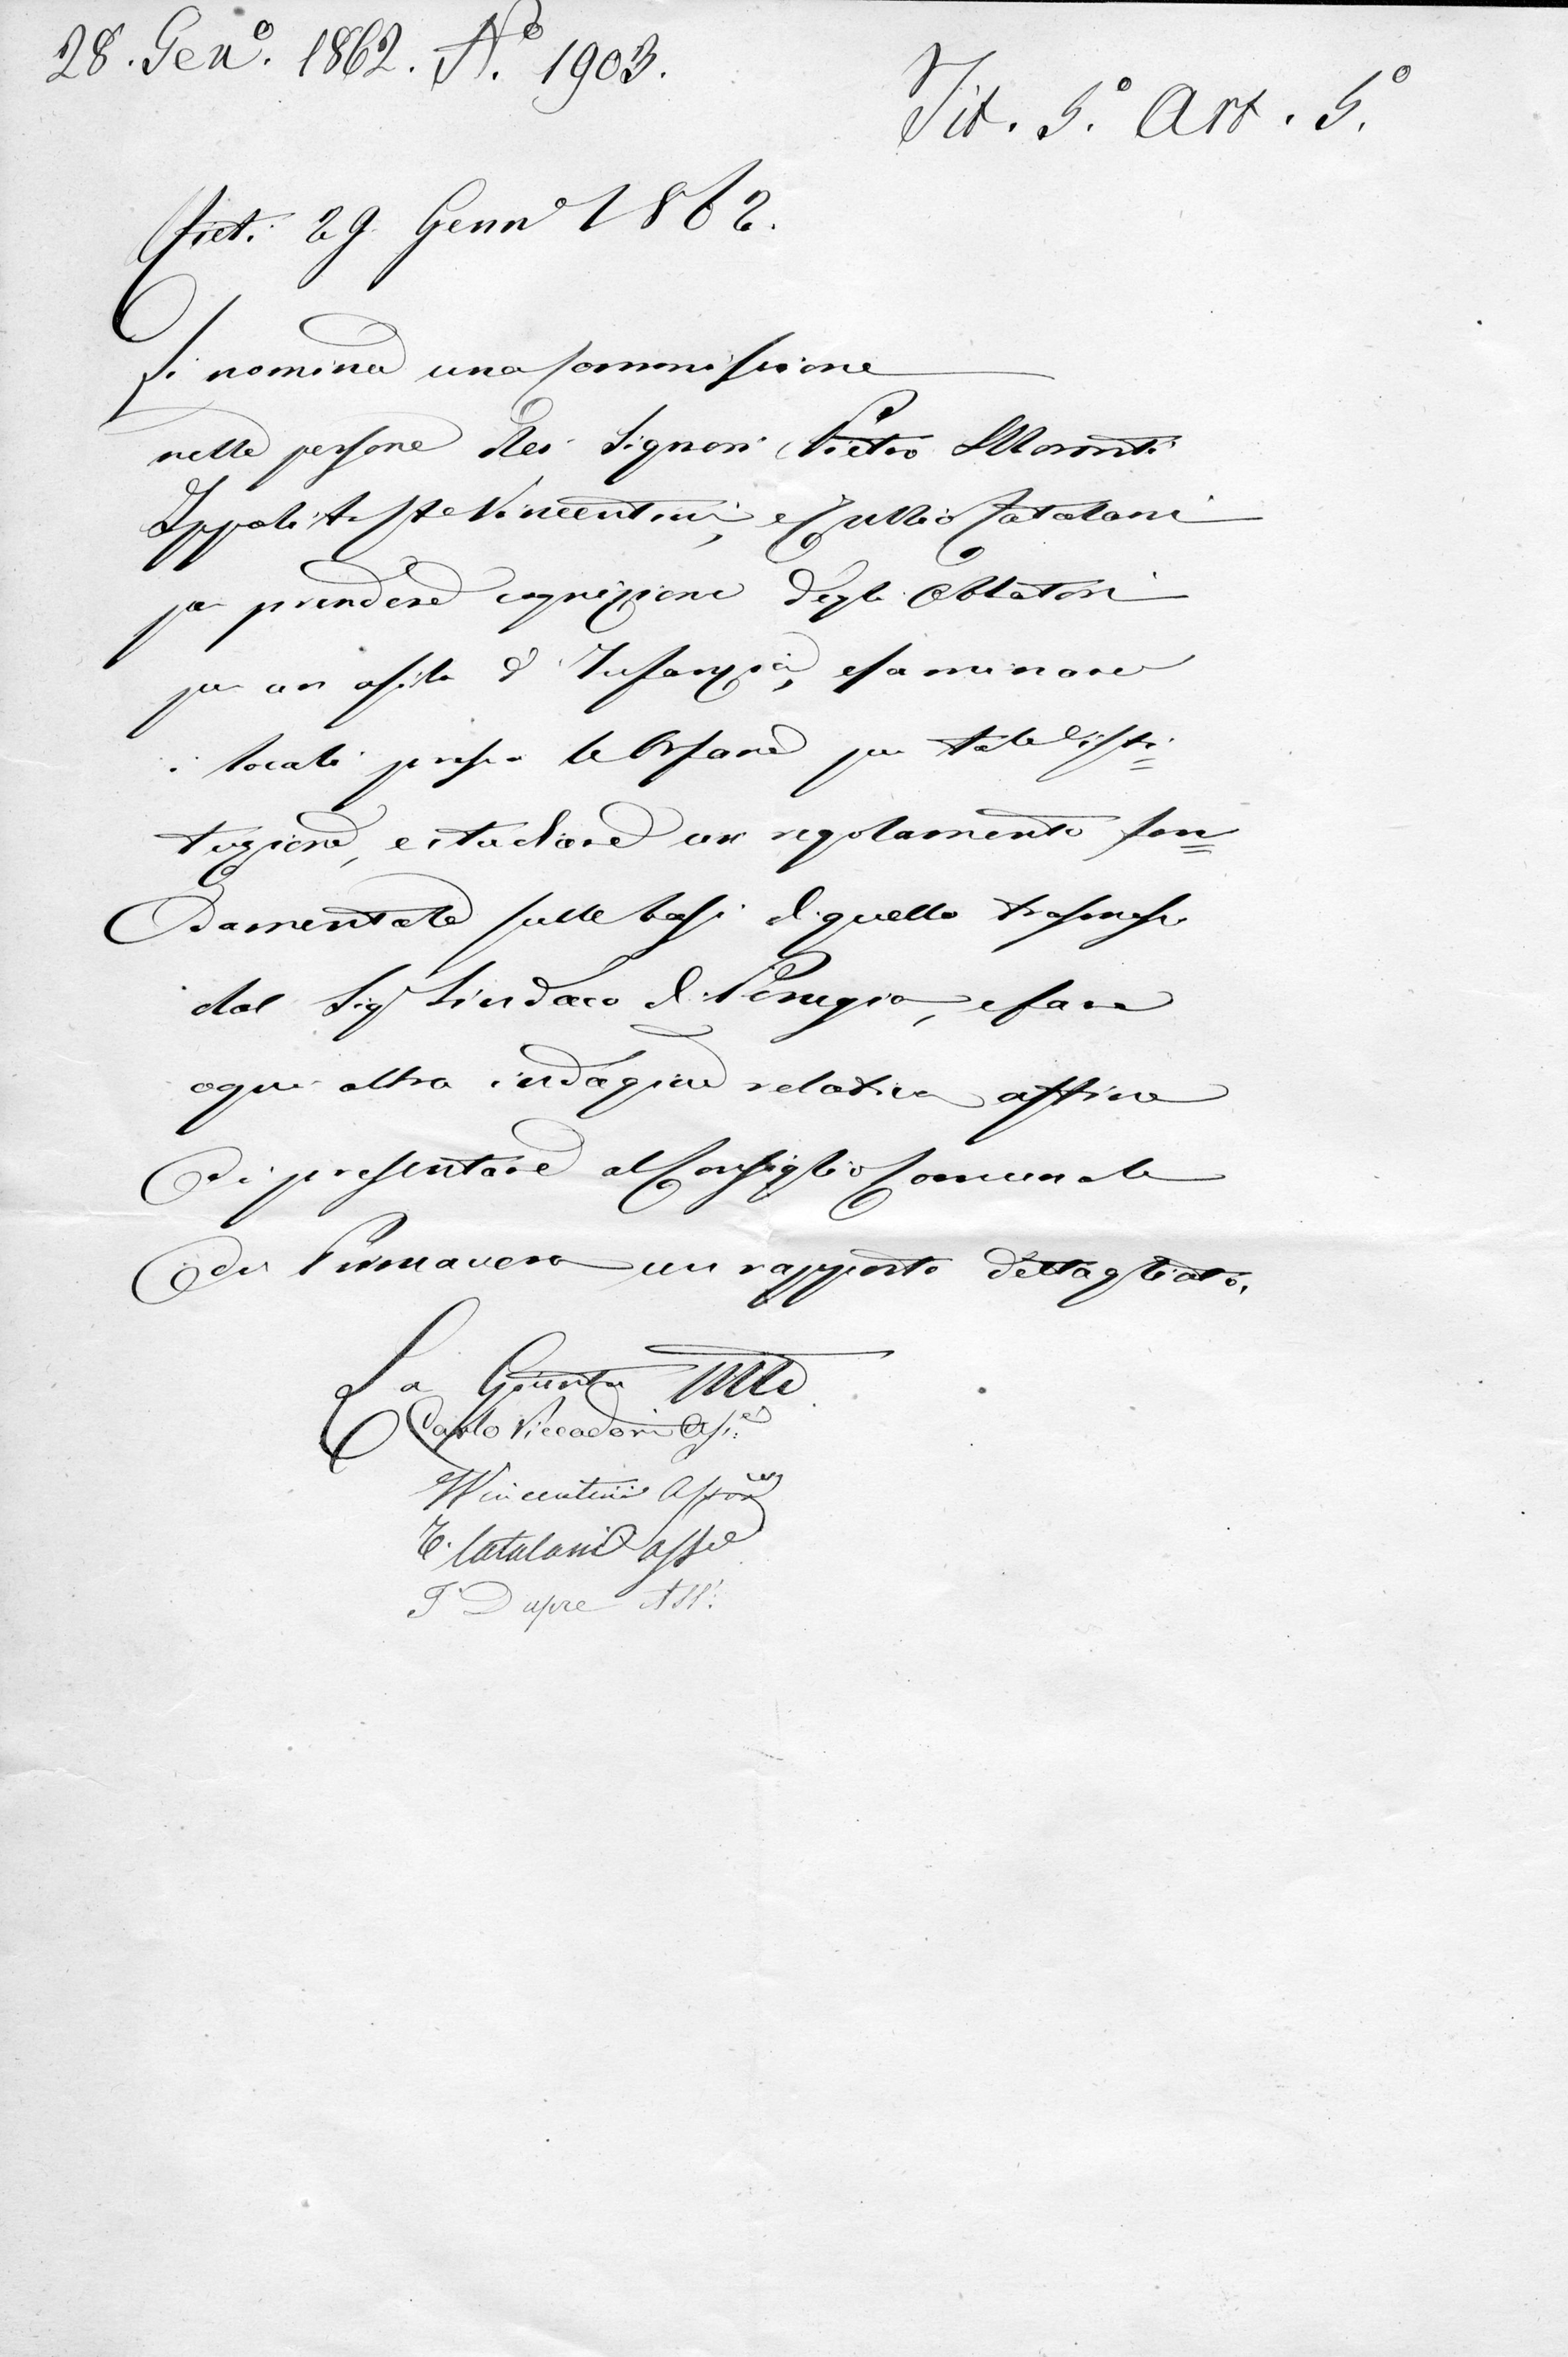 28. Gen.º 1862. N.º 1903.
Tit. 5.º Art. 5.º
Rieti 29 Gennº 1862.
Si nomina una Commissione
nelle persone dei Signori Pietro
Ippolito Vincentini, e Tullio Catalani
per prendere cognizione degli Oblatori
per un asilo d'Infanzia, esaminare
i locali presso le Orfane per tale isti=
tuzione, e studiare un regolamento fon=
damentale sulle basi di quello trasmesso
dal Sigr Sindaco di Perugia, e fare
ogni altra indagine relativa affine
di presentare al Consiglio Comunale
di Primavera un rapporto dettagliato.
La Giunta Mle
Carlo
Vincentini
T. Catalani Asse
Dupre Ass.